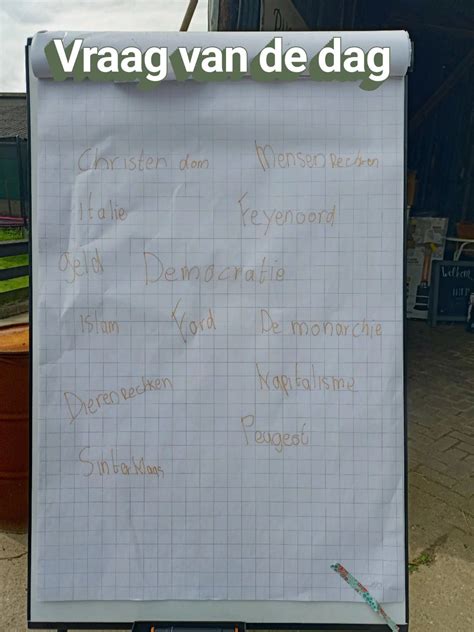 Vraag van de dag
Christen dom Mensenrechten
Italie Feyenoord
geld Democratie
Islam Ford De monarchie
Dierenrechten Kapitalisme
Peugeot
Sinterklaas
Welkom